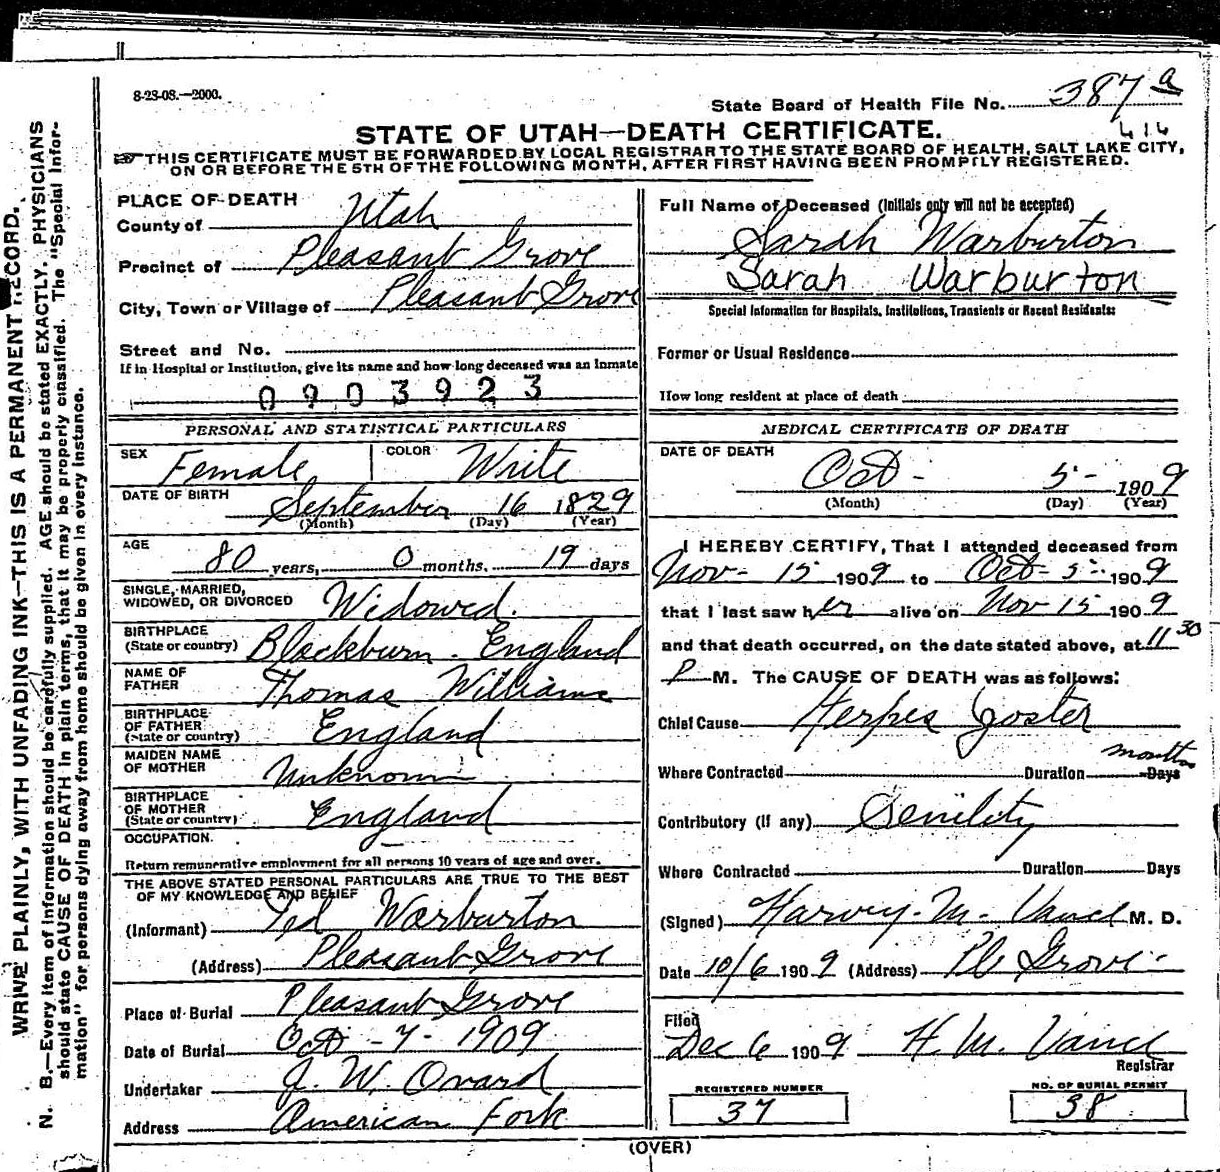 8-23-08.—2000.
State Board of Health File No. 387 a
416
STATE OF UTAH—DEATH CERTIFICATE.
THIS CERTIFICATE MUST BE FORWARDED BY LOCAL REGISTRAR TO THE STATE BOARD OF HEALTH, SALT LAKE CITY,
ON OR BEFORE THE 5TH OF THE FOLLOWING MONTH, AFTER FIRST HAVING BEEN PROMPTLY REGISTERED.
WRITE PLAINLY, WITH UNFADING INK—THIS IS A PERMANENT RECORD.
N. B.—Every item of information should be carefully supplied. AGE should be stated EXACTLY. PHYSICIANS
should state CAUSE OF DEATH in plain terms, that it may be properly classified. The "Special Infor-
mation" for persons dying away from home should be given in every instance.
PLACE OF DEATH
County of Utah
Precinct of Pleasant Grove
City, Town or Village of Pleasant Grove
Street and No.
If in Hospital or Institution, give its name and how long deceased was an Inmate
0903923
PERSONAL AND STATISTICAL PARTICULARS
SEX Female COLOR White
DATE OF BIRTH September 16 1829
(Month) (Day) (Year)
AGE 80 years, 0 months, 19 days
SINGLE, MARRIED,
WIDOWED, OR DIVORCED Widowed.
BIRTHPLACE
(State or country) Blackburn. England
NAME OF
FATHER Thomas Williams
BIRTHPLACE
OF FATHER
(State or country) England
MAIDEN NAME
OF MOTHER Unknown
BIRTHPLACE
OF MOTHER
(State or country) England
OCCUPATION.
Return remunerative employment for all persons 10 years of age and over.
THE ABOVE STATED PERSONAL PARTICULARS ARE TRUE TO THE BEST
OF MY KNOWLEDGE AND BELIEF
(Informant) Warburton
(Address) Pleasant Grove
Place of Burial Pleasant Grove
Date of Burial Oct - 7 - 1909
Undertaker J. W. Ovard
Address American Fork
Full Name of Deceased (Initials only will not be accepted)
Sarah Warburton
Sarah Warburton
Special Information for Hospitals, Institutions, Transients or Recent Residents:
Former or Usual Residence
How long resident at place of death
MEDICAL CERTIFICATE OF DEATH
DATE OF DEATH
Oct - 5 - 1909
(Month) (Day) (Year)
I HEREBY CERTIFY, That I attended deceased from
Nov - 15 1909 to Oct - 5 - 1909
that I last saw her alive on Nov 15 1909
and that death occurred, on the date stated above, at 11 30
P M. The CAUSE OF DEATH was as follows:
Chief Cause Herpes Zoster
months
Where Contracted Duration Days
Contributory (if any) Senility
Where Contracted Duration Days
(Signed) Harvey. M. Vance M. D.
Date 10/6 1909 (Address) Pl Grove.
Filed
Dec 6 1909 H. M. Vance
Registrar
REGISTERED NUMBER
37
NO. OF BURIAL PERMIT
38
(OVER)